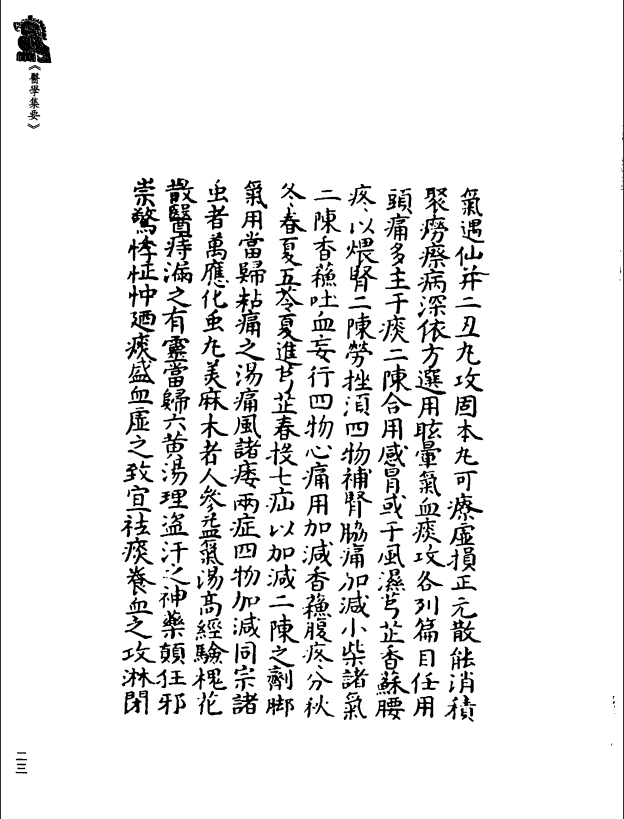 《醫學集要》
氣遇仙并二丑九攻固本九可療虛損正元散能消積
聚癆瘵病深依方選用眩暈氣血痰攻各列篇目任用
頭痛多主于痰二陳合用感冒或于風濕芎芷香蘇腰
疼以煨腎二陳勞挫須四物補腎脇痛加減小柴諸氣
二陳香蘓吐血妄行四物心痛用加減香蘓腹疼分秋
冬春夏五苓夏進芎芷春投七疝以加減二陳之劑脚
氣用當歸粘痛之湯痛風諸痿兩症四物加減同宗諸
虫者萬應化虫九美麻木者人參益氣湯高經驗槐花
散醫痔漏之有靈當歸六黄湯理盗汗之神藥顛狂邪
祟驚悸怔忡廼痰盛血虛之致宜祛痰養血之攻淋閉
二三